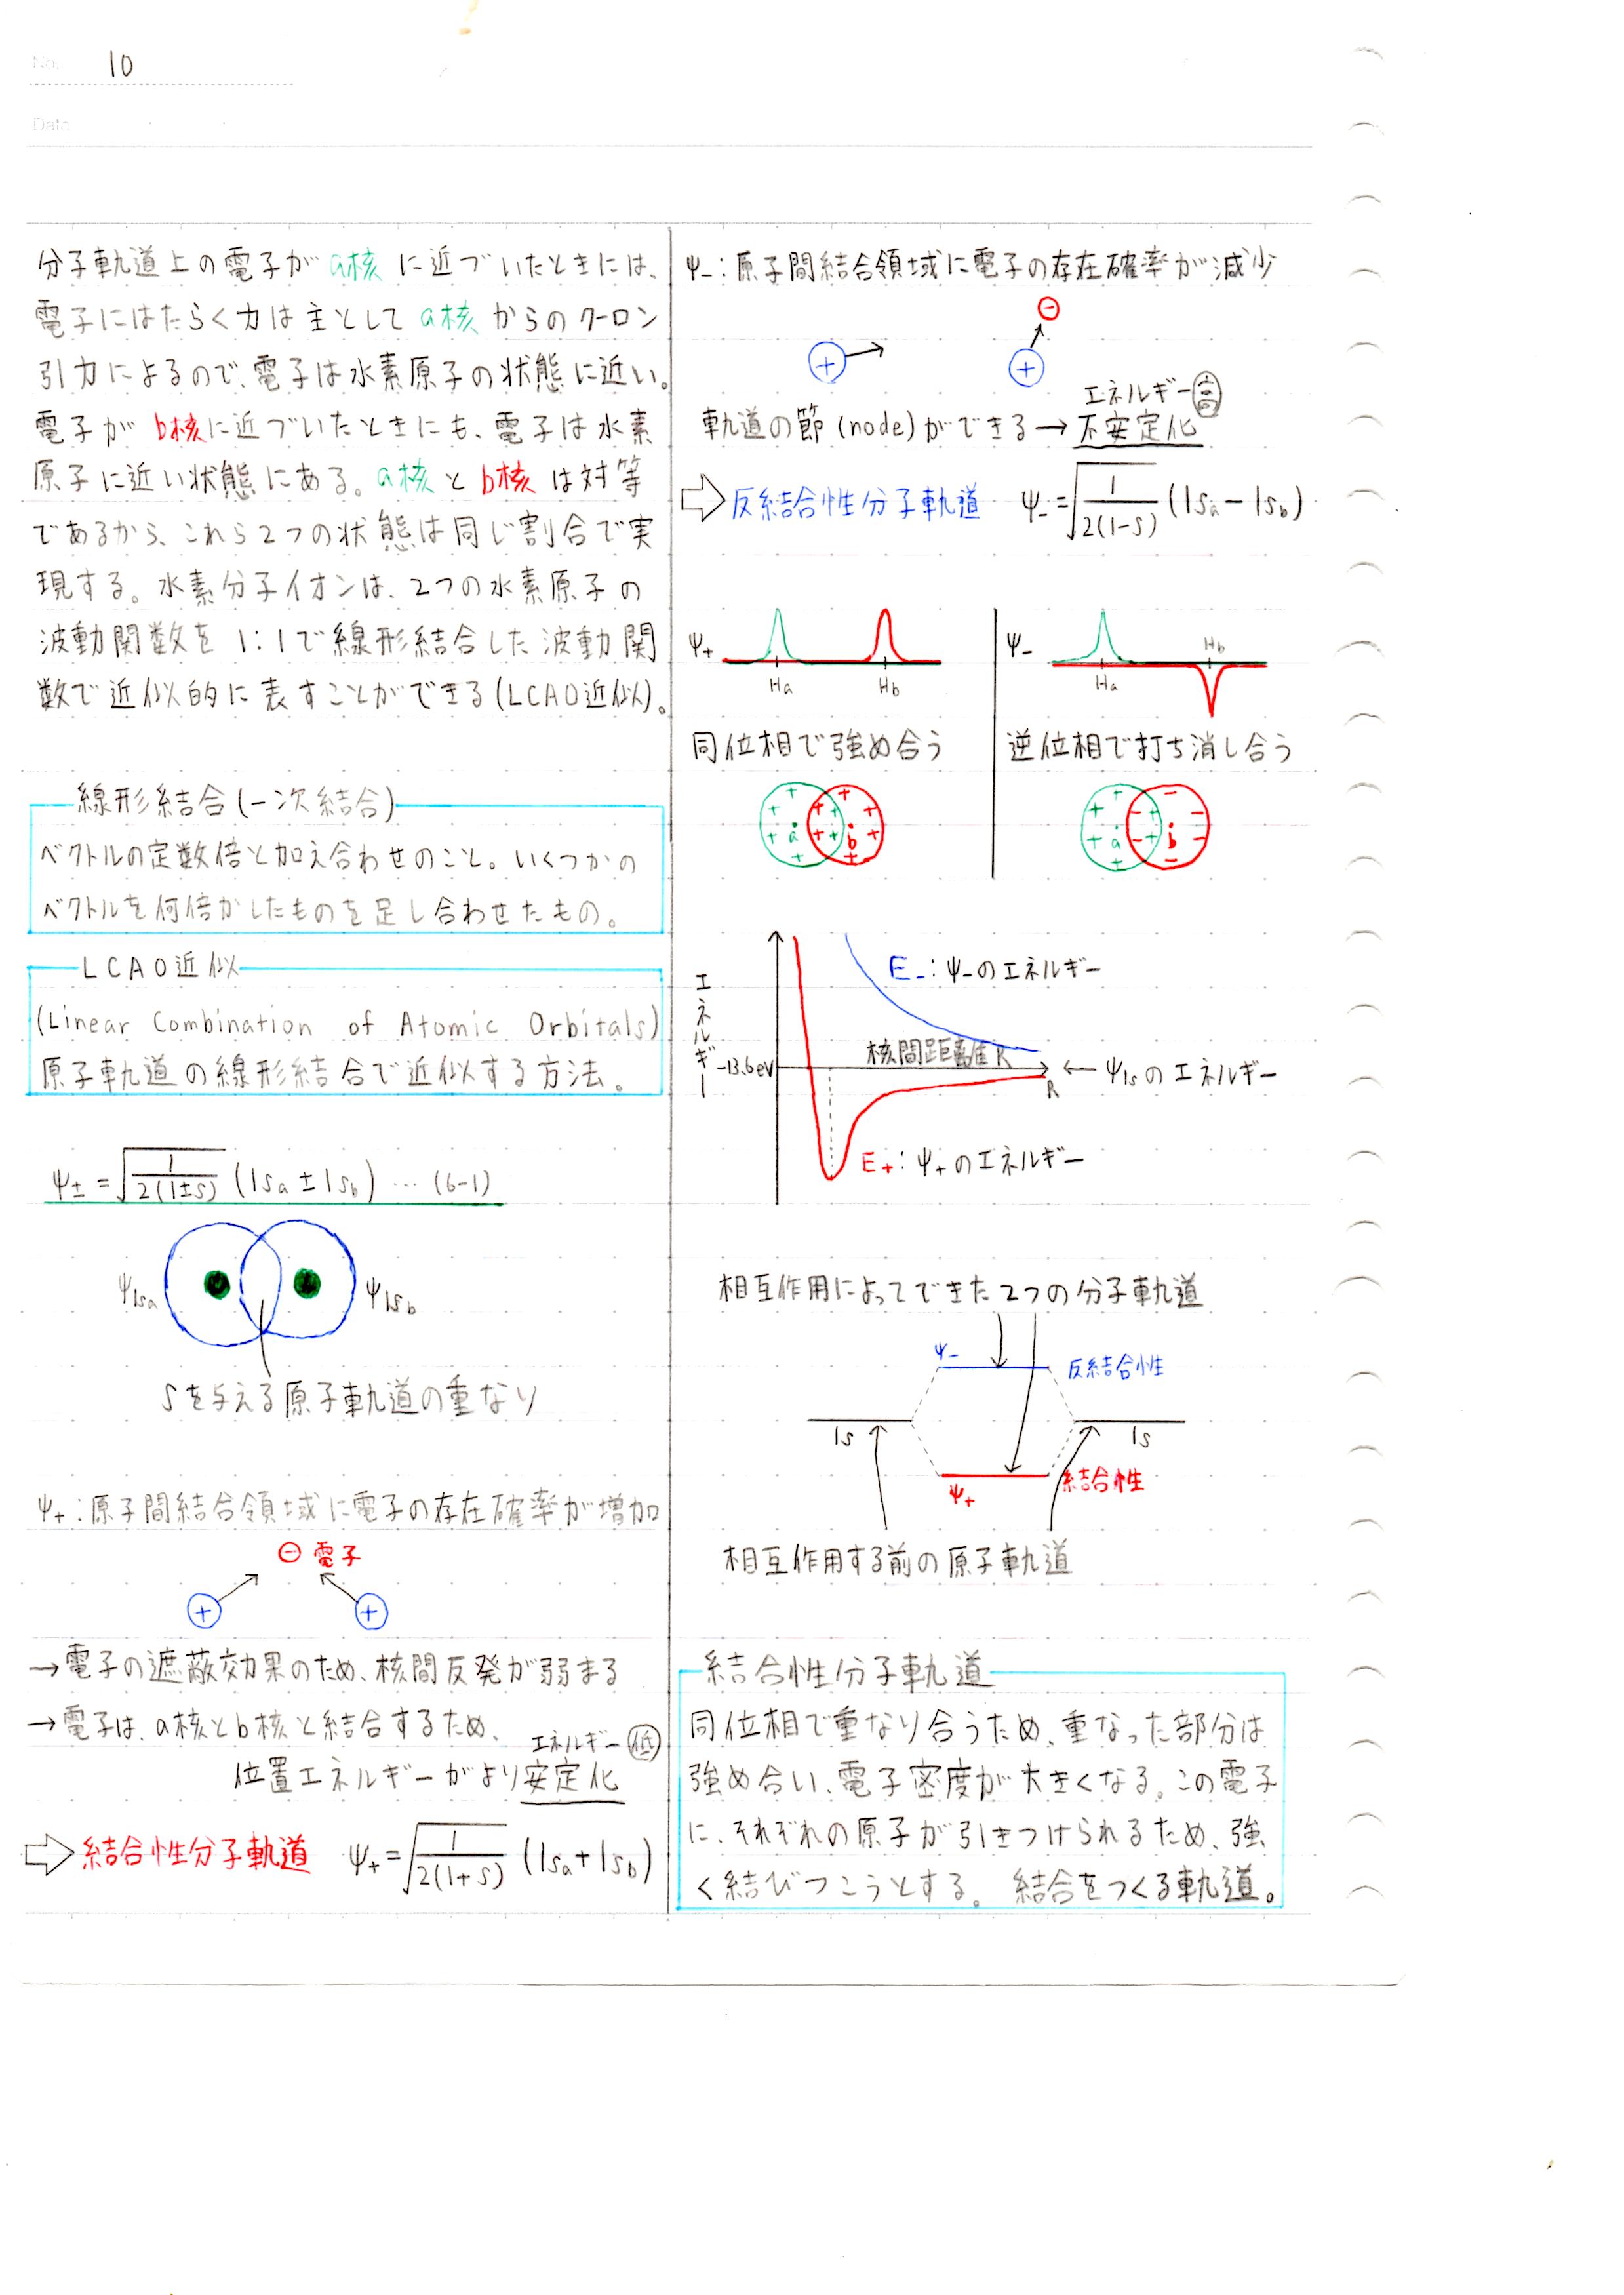 No. 10
Date
分子軌道上の電子がa核に近づいたときには、
電子にはたらく力は主としてa核からのクーロン
引力によるので、電子は水素原子の状態に近い。
電子がb核に近づいたときにも、電子は水素
原子に近い状態にある。a核とb核は対等
であるから、これら2つの状態は同じ割合で実
現する。水素分子イオンは、2つの水素原子の
波動関数を1:1で線形結合した波動関
数で近似的に表すことができる(LCAO近似)。
線形結合(一次結合)
ベクトルの定数倍と加え合わせのこと。いくつかの
ベクトルを何倍かしたものを足し合わせたもの。
LCAO近似
(Linear Combination of Atomic Orbitals)
原子軌道の線形結合で近似する方法。
ψ± = √1/2(1±S) (1sa ± 1sb) … (6-1)
ψ1sa ψ1sb
Sを与える原子軌道の重なり
ψ+:原子間結合領域に電子の存在確率が増加
⊖ 電子
+ +
→電子の遮蔽効果のため、核間反発が弱まる
→電子は、a核とb核と結合するため、
エネルギー低
位置エネルギーがより安定化
⇨結合性分子軌道 ψ+=√1/2(1+S) (1sa+1sb)
ψ-:原子間結合領域に電子の存在確率が減少
⊖
+ +
エネルギー高
軌道の節(node)ができる→不安定化
⇨反結合性分子軌道 ψ-=√1/2(1-S) (1sa-1sb)
ψ+ Ha Hb
ψ- Ha Hb
同位相で強め合う
逆位相で打ち消し合う
+ + + + a + + + + + + b + + +
+ + + + a + + - - - - b - - -
エネルギー
E-:ψ-のエネルギー
核間距離 R
-13.6eV
R
←ψ1sのエネルギー
E+:ψ+のエネルギー
相互作用によってできた2つの分子軌道
ψ- 反結合性
1s 1s
ψ+ 結合性
相互作用する前の原子軌道
結合性分子軌道
同位相で重なり合うため、重なった部分は
強め合い、電子密度が大きくなる。この電子
に、それぞれの原子が引きつけられるため、強
く結びつこうとする。結合をつくる軌道。